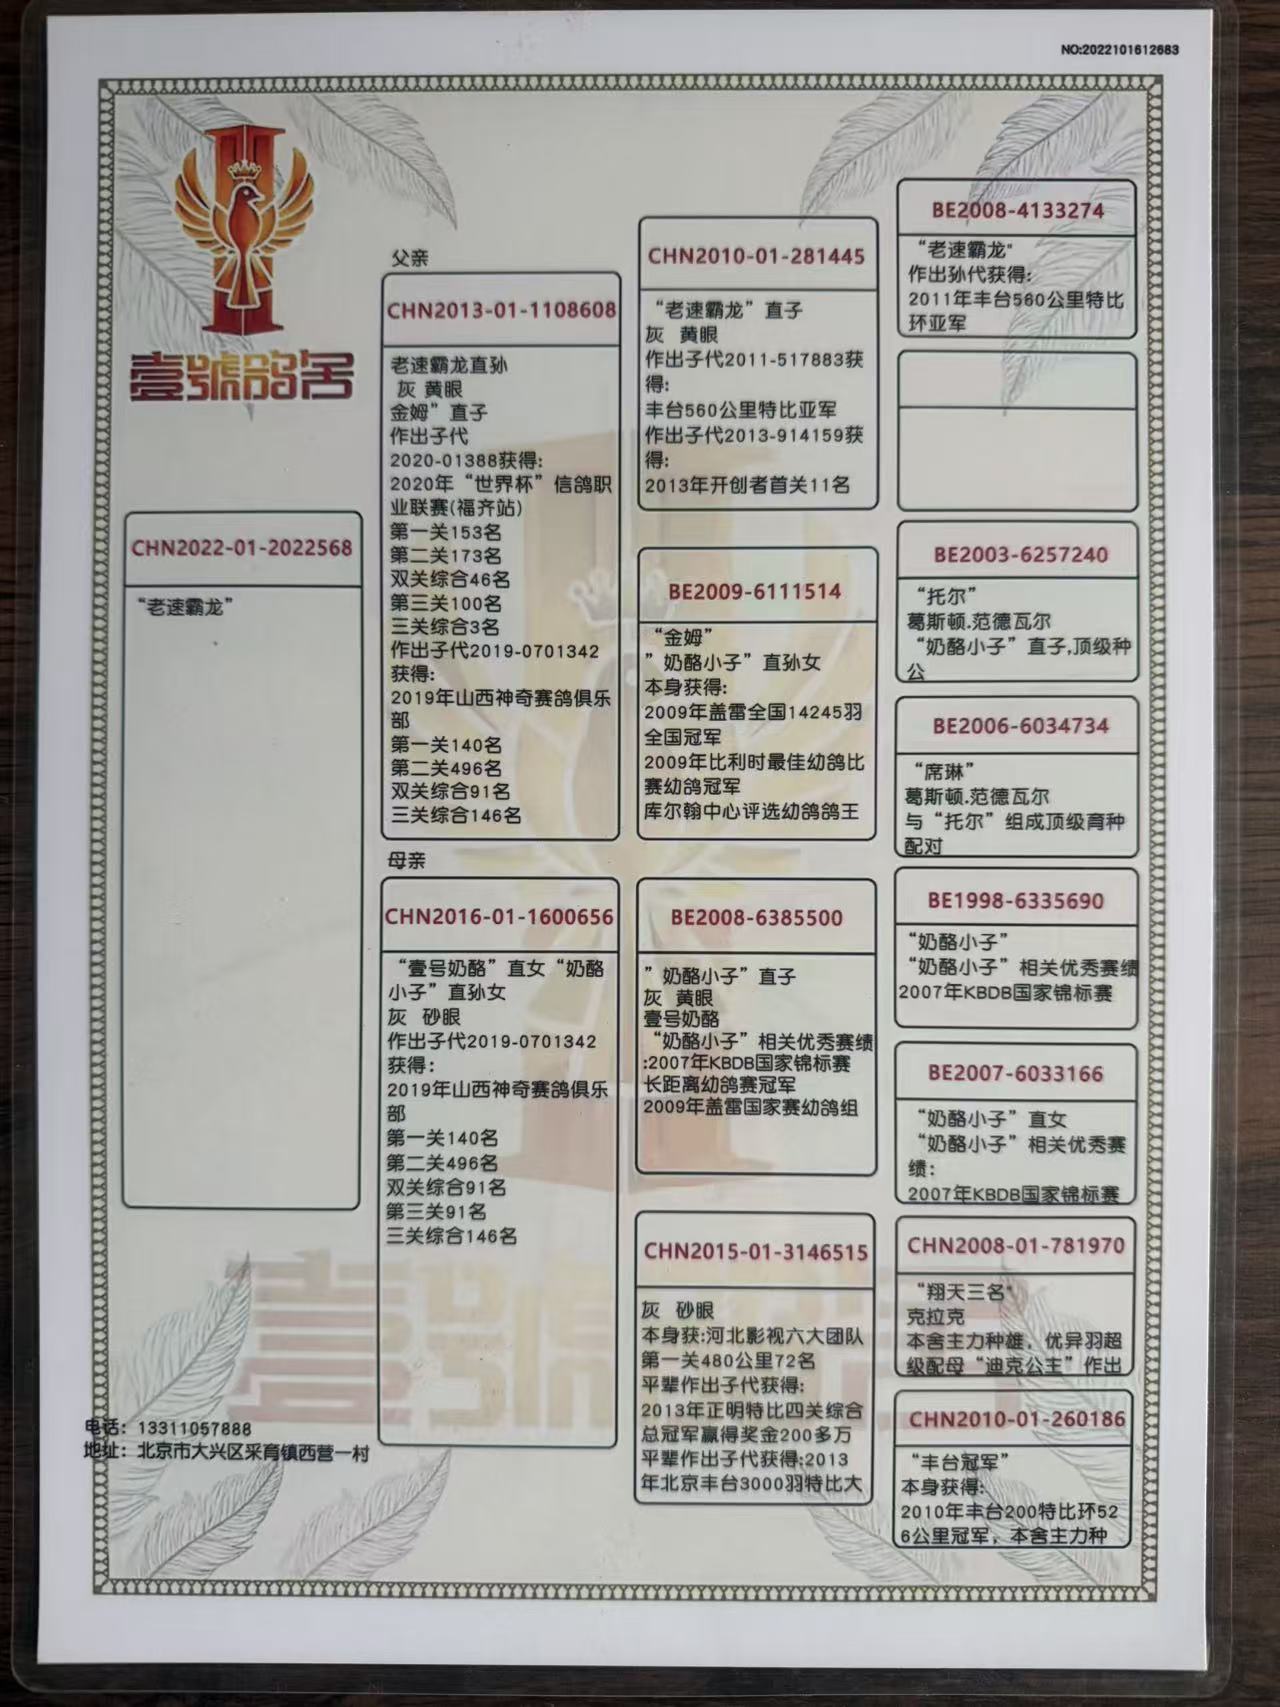 NO:2022101612683
壹號鸽舍
CHN2022-01-2022568
“老速霸龙”
父亲
CHN2013-01-1108608
老速霸龙直孙
灰 黄眼
金姆”直子
作出子代
2020-01388获得:
2020年“世界杯”信鸽职
业联赛(福齐站)
第一关153名
第二关173名
双关综合46名
第三关100名
三关综合3名
作出子代2019-0701342
获得:
2019年山西神奇赛鸽俱乐
部
第一关140名
第二关496名
双关综合91名
三关综合146名
母亲
CHN2016-01-1600656
“壹号奶酪”直女“奶酪
小子”直孙女
灰 砂眼
作出子代2019-0701342
获得:
2019年山西神奇赛鸽俱乐
部
第一关140名
第二关496名
双关综合91名
第三关91名
三关综合146名
CHN2010-01-281445
“老速霸龙”直子
灰 黄眼
作出子代2011-517883获
得:
丰台560公里特比亚军
作出子代2013-914159获
得:
2013年开创者首关11名
BE2009-6111514
“金姆”
”奶酪小子”直孙女
本身获得:
2009年盖雷全国14245羽
全国冠军
2009年比利时最佳幼鸽比
赛幼鸽冠军
库尔翰中心评选幼鸽鸽王
BE2008-6385500
”奶酪小子”直子
灰 黄眼
壹号奶酪
“奶酪小子”相关优秀赛绩
:2007年KBDB国家锦标赛
长距离幼鸽赛冠军
2009年盖雷国家赛幼鸽组
CHN2015-01-3146515
灰 砂眼
本身获:河北影视六大团队
第一关480公里72名
平辈作出子代获得:
2013年正明特比四关综合
总冠军赢得奖金200多万
平辈作出子代获得:2013
年北京丰台3000羽特比大
BE2008-4133274
“老速霸龙"
作出孙代获得:
2011年丰台560公里特比
环亚军
BE2003-6257240
“托尔”
葛斯顿.范德瓦尔
“奶酪小子”直子,顶级种
公
BE2006-6034734
“席琳”
葛斯顿.范德瓦尔
与“托尔”组成顶级育种
配对
BE1998-6335690
“奶酪小子”
“奶酪小子”相关优秀赛绩
2007年KBDB国家锦标赛
BE2007-6033166
“奶酪小子”直女
“奶酪小子”相关优秀赛
绩:
2007年KBDB国家锦标赛
CHN2008-01-781970
“翔天三名"
克拉克
本舍主力种雄，优异羽超
级配母“迪克公主”作出
CHN2010-01-260186
“丰台冠军”
本身获得:
2010年丰台200特比环52
6公里冠军，本舍主力种
电话：13311057888
地址：北京市大兴区采育镇西营一村